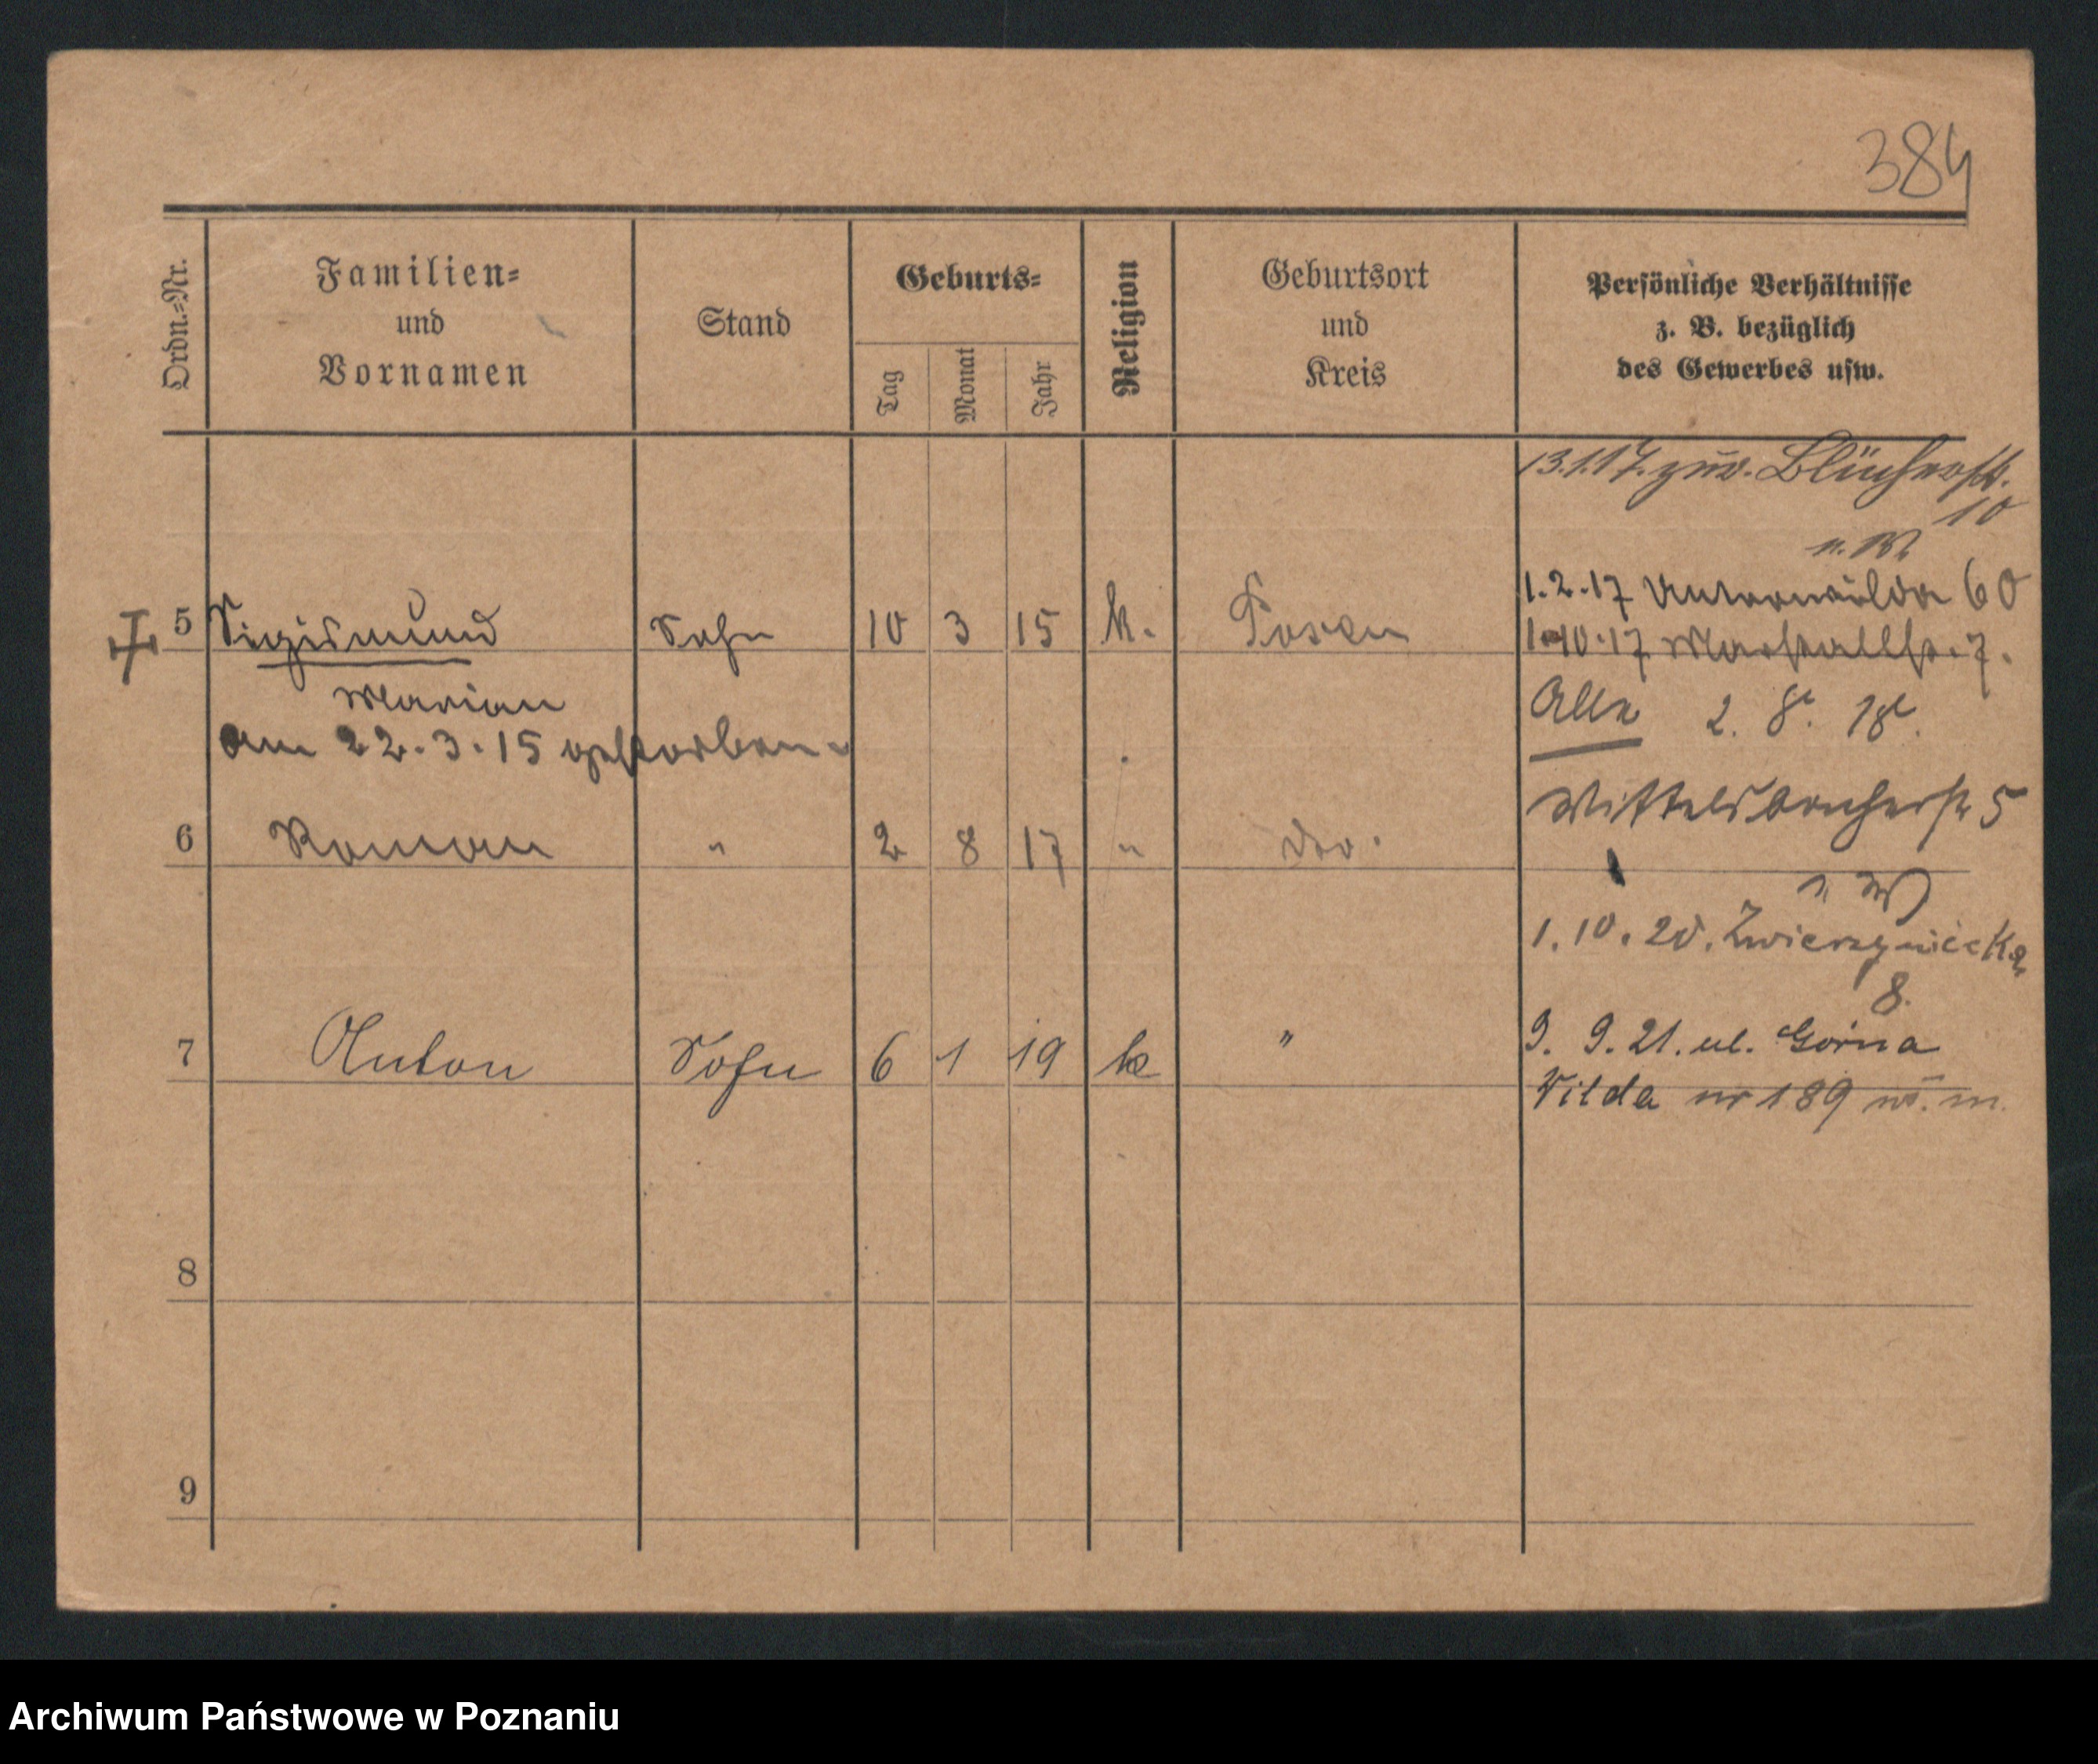 384
Ordn.=Nr.
Familien=
und
Vornamen
Stand
Geburts=
Tag
Monat
Jahr
Religion
Geburtsort
und
Kreis
Persönliche Verhältnisse
z. B. bezüglich
des Gewerbes usw.
13.1.17. zur. Blücherstr.
10
n. W.
1.2.17 Unterwilda 60
5 Sigismund Sohn 10 3 15 k. Posen
1.10.17 Marstallstr. 7.
Marian
Alle 2. 8. 18.
am 22.3.15 gestorben.
Wittelsbacherstr 5
6 Roman " 2 8 17 " do.
n W
1.10.20. Zwierzyniecka
8.
7 Anton Sohn 6 1 19 k "
9. 9. 21. ul. Górna
Wilda nr 189 w. m.
8
9
Archiwum Państwowe w Poznaniu